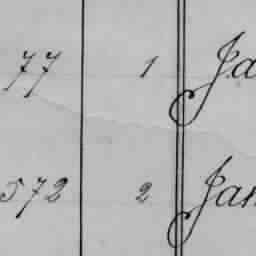 77 1 Ja
572 2 Jan